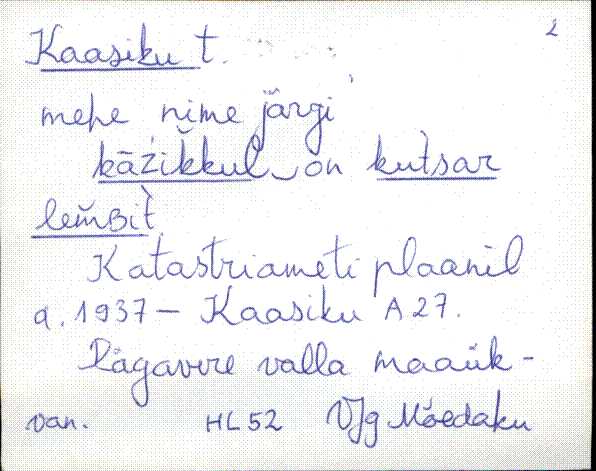 2
Kaasiku t.
mehe nime järgi
kāźikkul‿on kut̀sar
lem̆ʙit̀
Katastriameti plaanil
a. 1937 — Kaasiku A 27.
Rägavere valla maaük-
van. HL 52 VJg Mõedaku